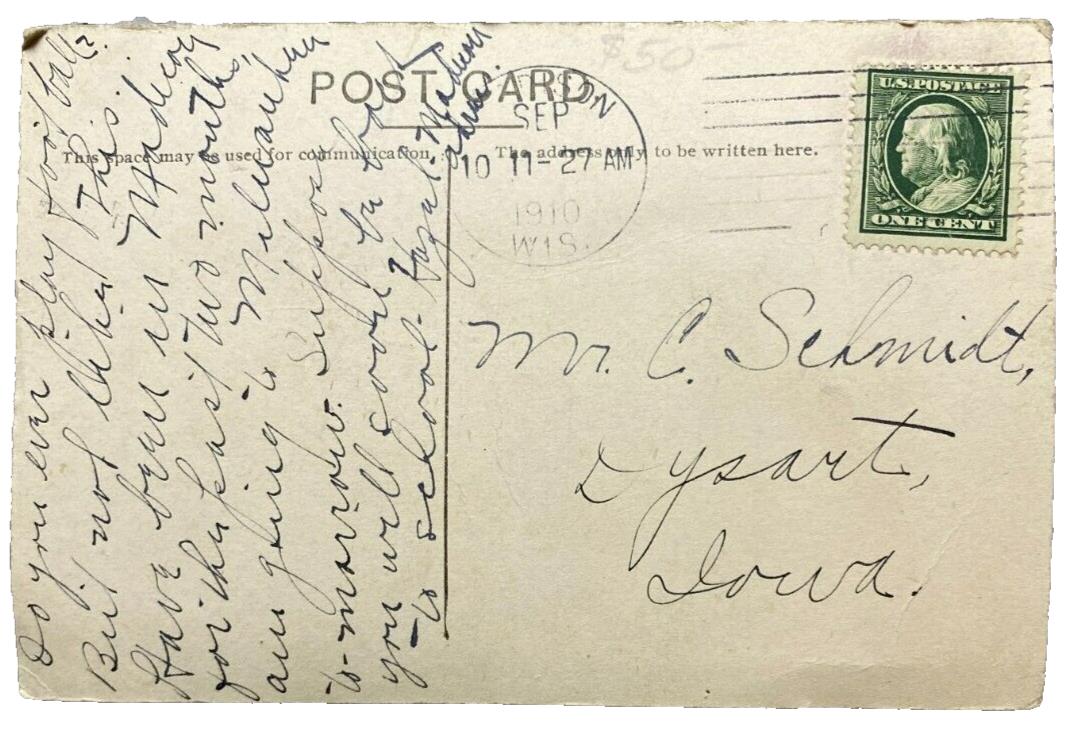 $50-
POST CARD
This space may be used for communication.
The address only to be written here.
SEP
10 11-27 AM
1910
WIS.
U.S. POSTAGE
ONE CENT
Do you ever play foot ball?
But not like This.
Have been in Madison
for the past two months,
am going to Milwaukee
to-morrow. Suppose
you will soon be back
to school - Hazel
Madison
Mr. C. Schmidt,
Dysart,
Iowa.